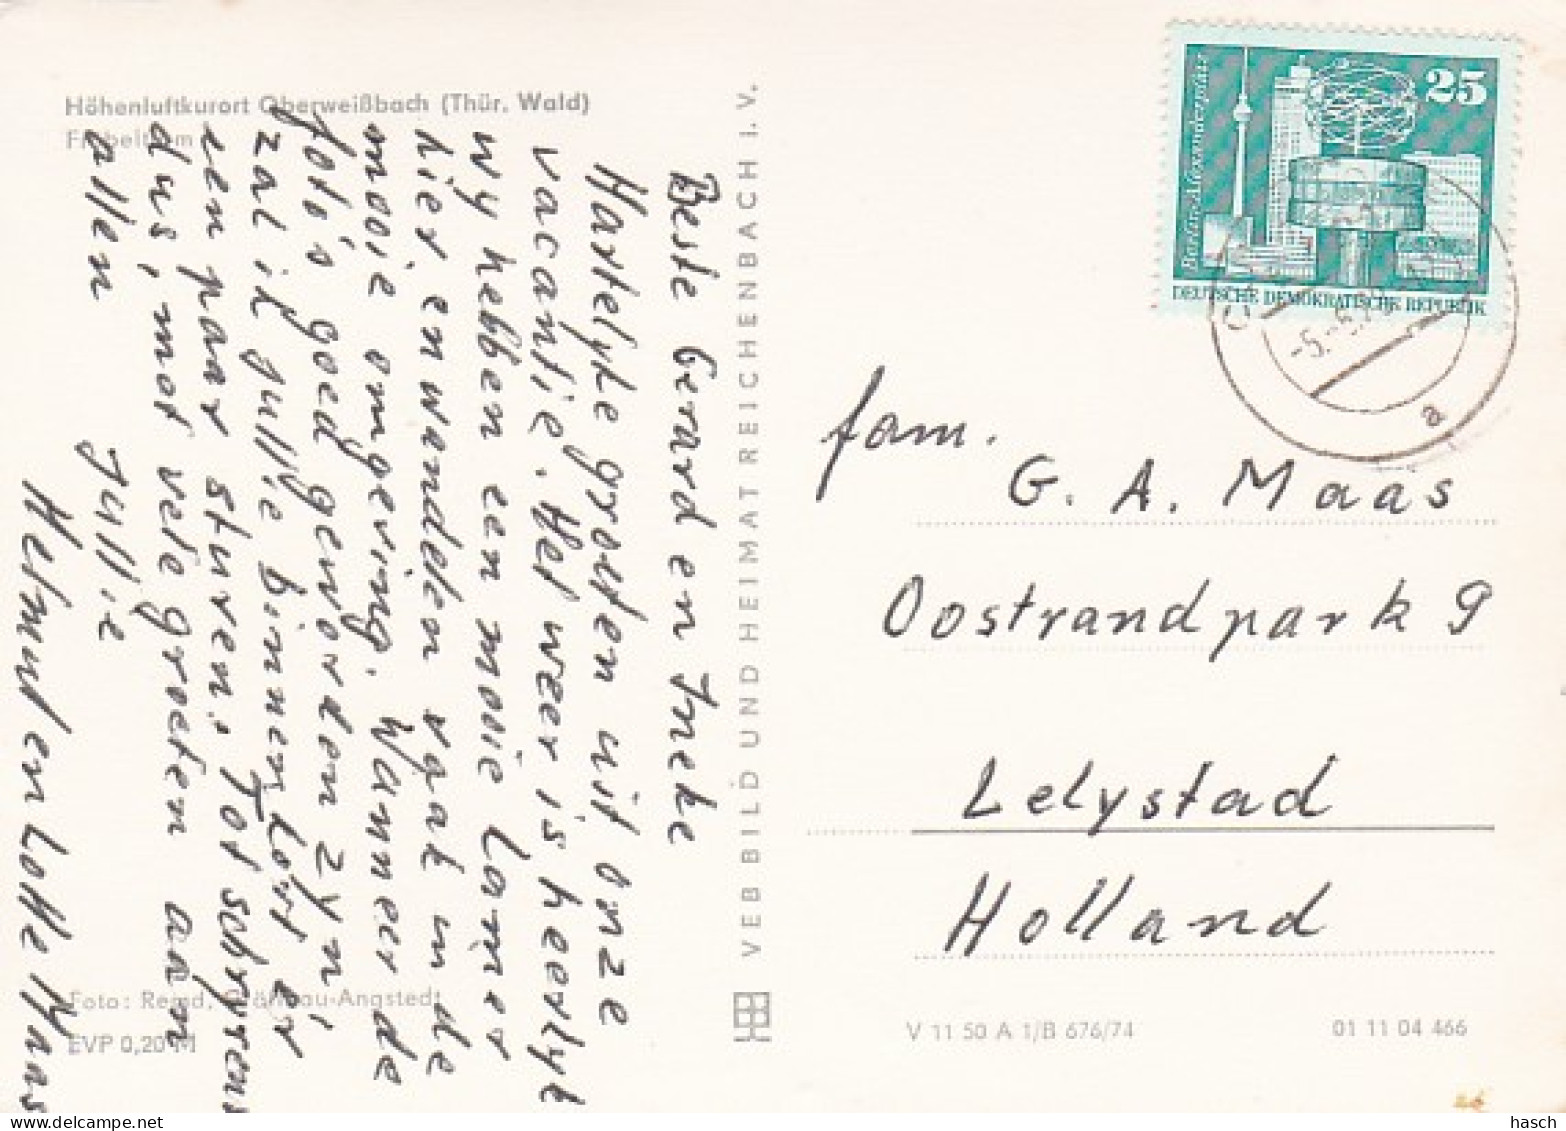 Höhenluftkurort Oberweißbach (Thür. Wald)
Beste Gerard en Ineke
Hartelyke groeten uit onze
vacantie. Het weer is heerlyk
wy hebben een mooie kamer
hier, en wandelen vaak in de
mooie omgeving. Wanneer de
foto's goed geworden zyn,
zal ik jullie binnenkort er
een paar sturen. Tot schryvens
dus, met vele groeten aan
allen jullie
Helmut en Lotte Maas
Foto: Reind, Gräfinau-Angstedt
EVP 0,20 M
VEB BILD UND HEIMAT REICHENBACH I. V.
25
Berlin, Alexanderplatz
DEUTSCHE DEMOKRATISCHE REPUBLIK
a
fam.
G. A. Maas
Oostrandpark 9
Lelystad
Holland
V 11 50 A 1/B 676/74
01 11 04 466
hasch